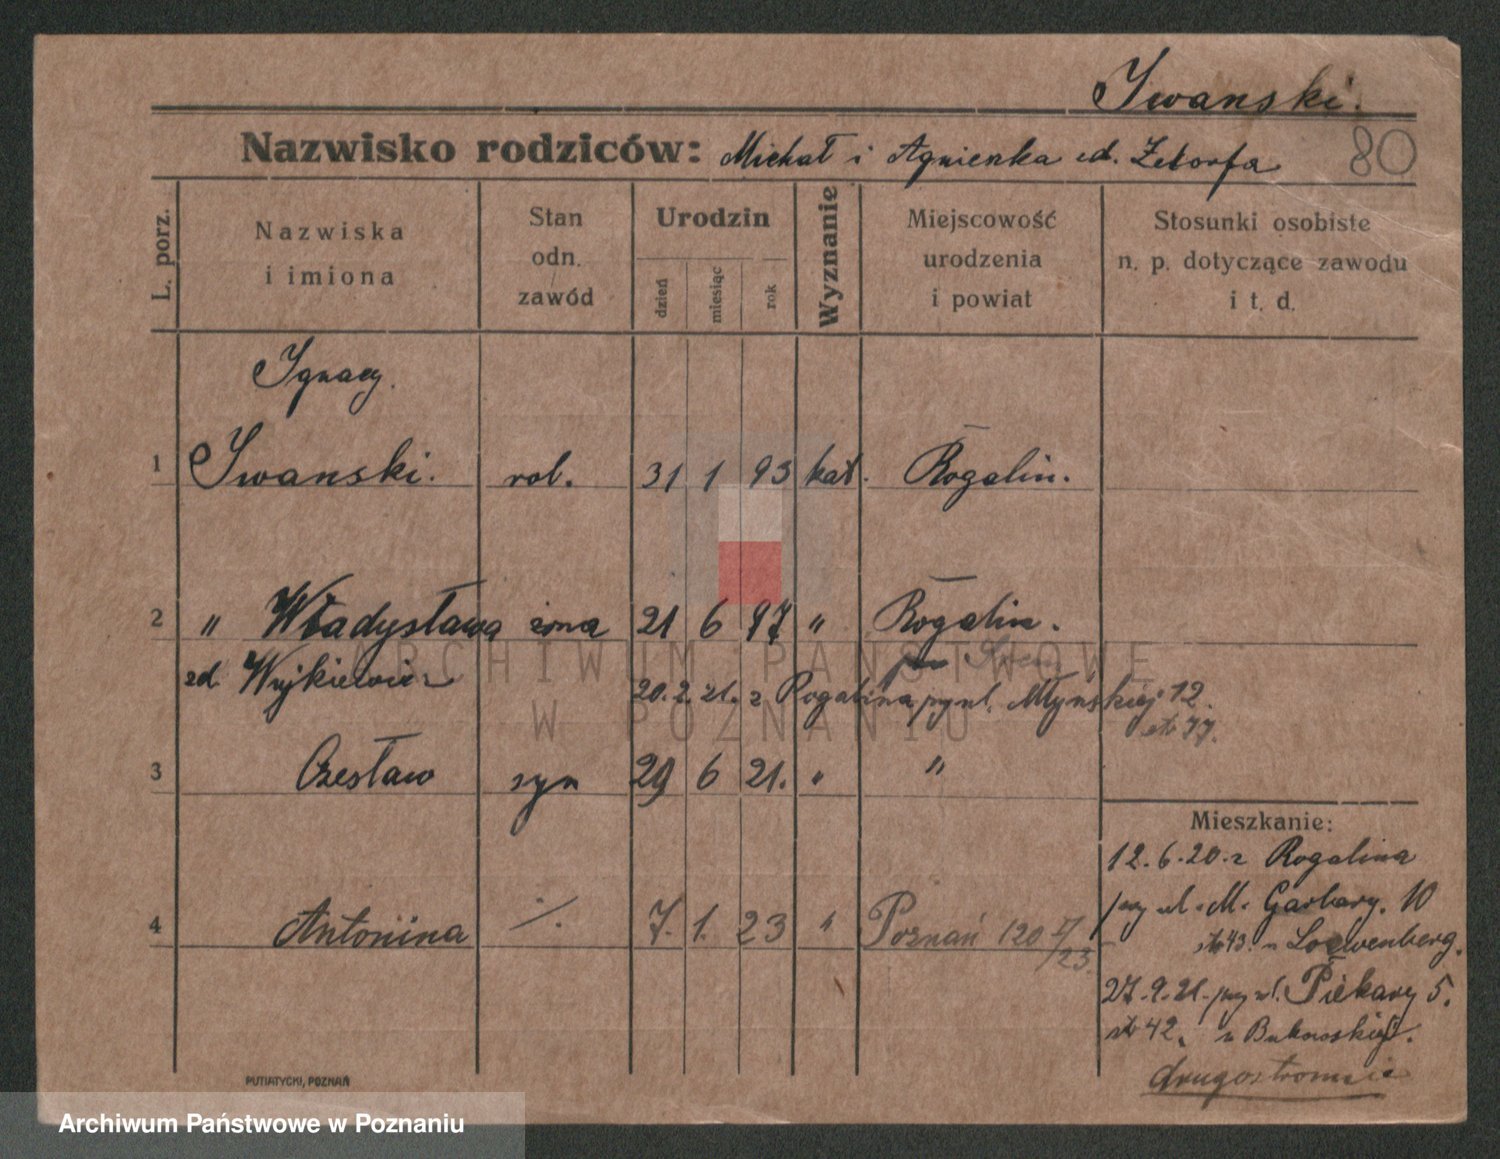 Iwanski.
Nazwisko rodziców: Michał i Agnieszka zd.
80
L. porz.
Nazwiska
i imiona
Stan
odn.
zawód
Urodzin
dzień
miesiąc
rok
Wyznanie
Miejscowość
urodzenia
i powiat
Stosunki osobiste
n. p. dotyczące zawodu
i t. d.
Ignacy.
1 Iwanski. rob. 31 1 93 kat. Rogalin.
2 " Władysława żona 21 6 97 " Rogalin.
zd. Wujkiewicz
20.2.21. z Rogalina przy ul. Młyńskiej 12.
str 77.
3 Czesław syn 29 6 21. " "
4 Antonina ·/. 7. 1. 23 " Poznań 120 I/23.
Mieszkanie:
12.6.20. z Rogalina
przy ul. M. Garbary. 10
str 43. u Loewenberg.
27.9.21. przy ul. Piekary 5.
str 42. u Bukowskiej.
drugostronnie
PUTIATYCKI, POZNAŃ
ARCHIWUM PAŃSTWOWE
W POZNANIU
Archiwum Państwowe w Poznaniu